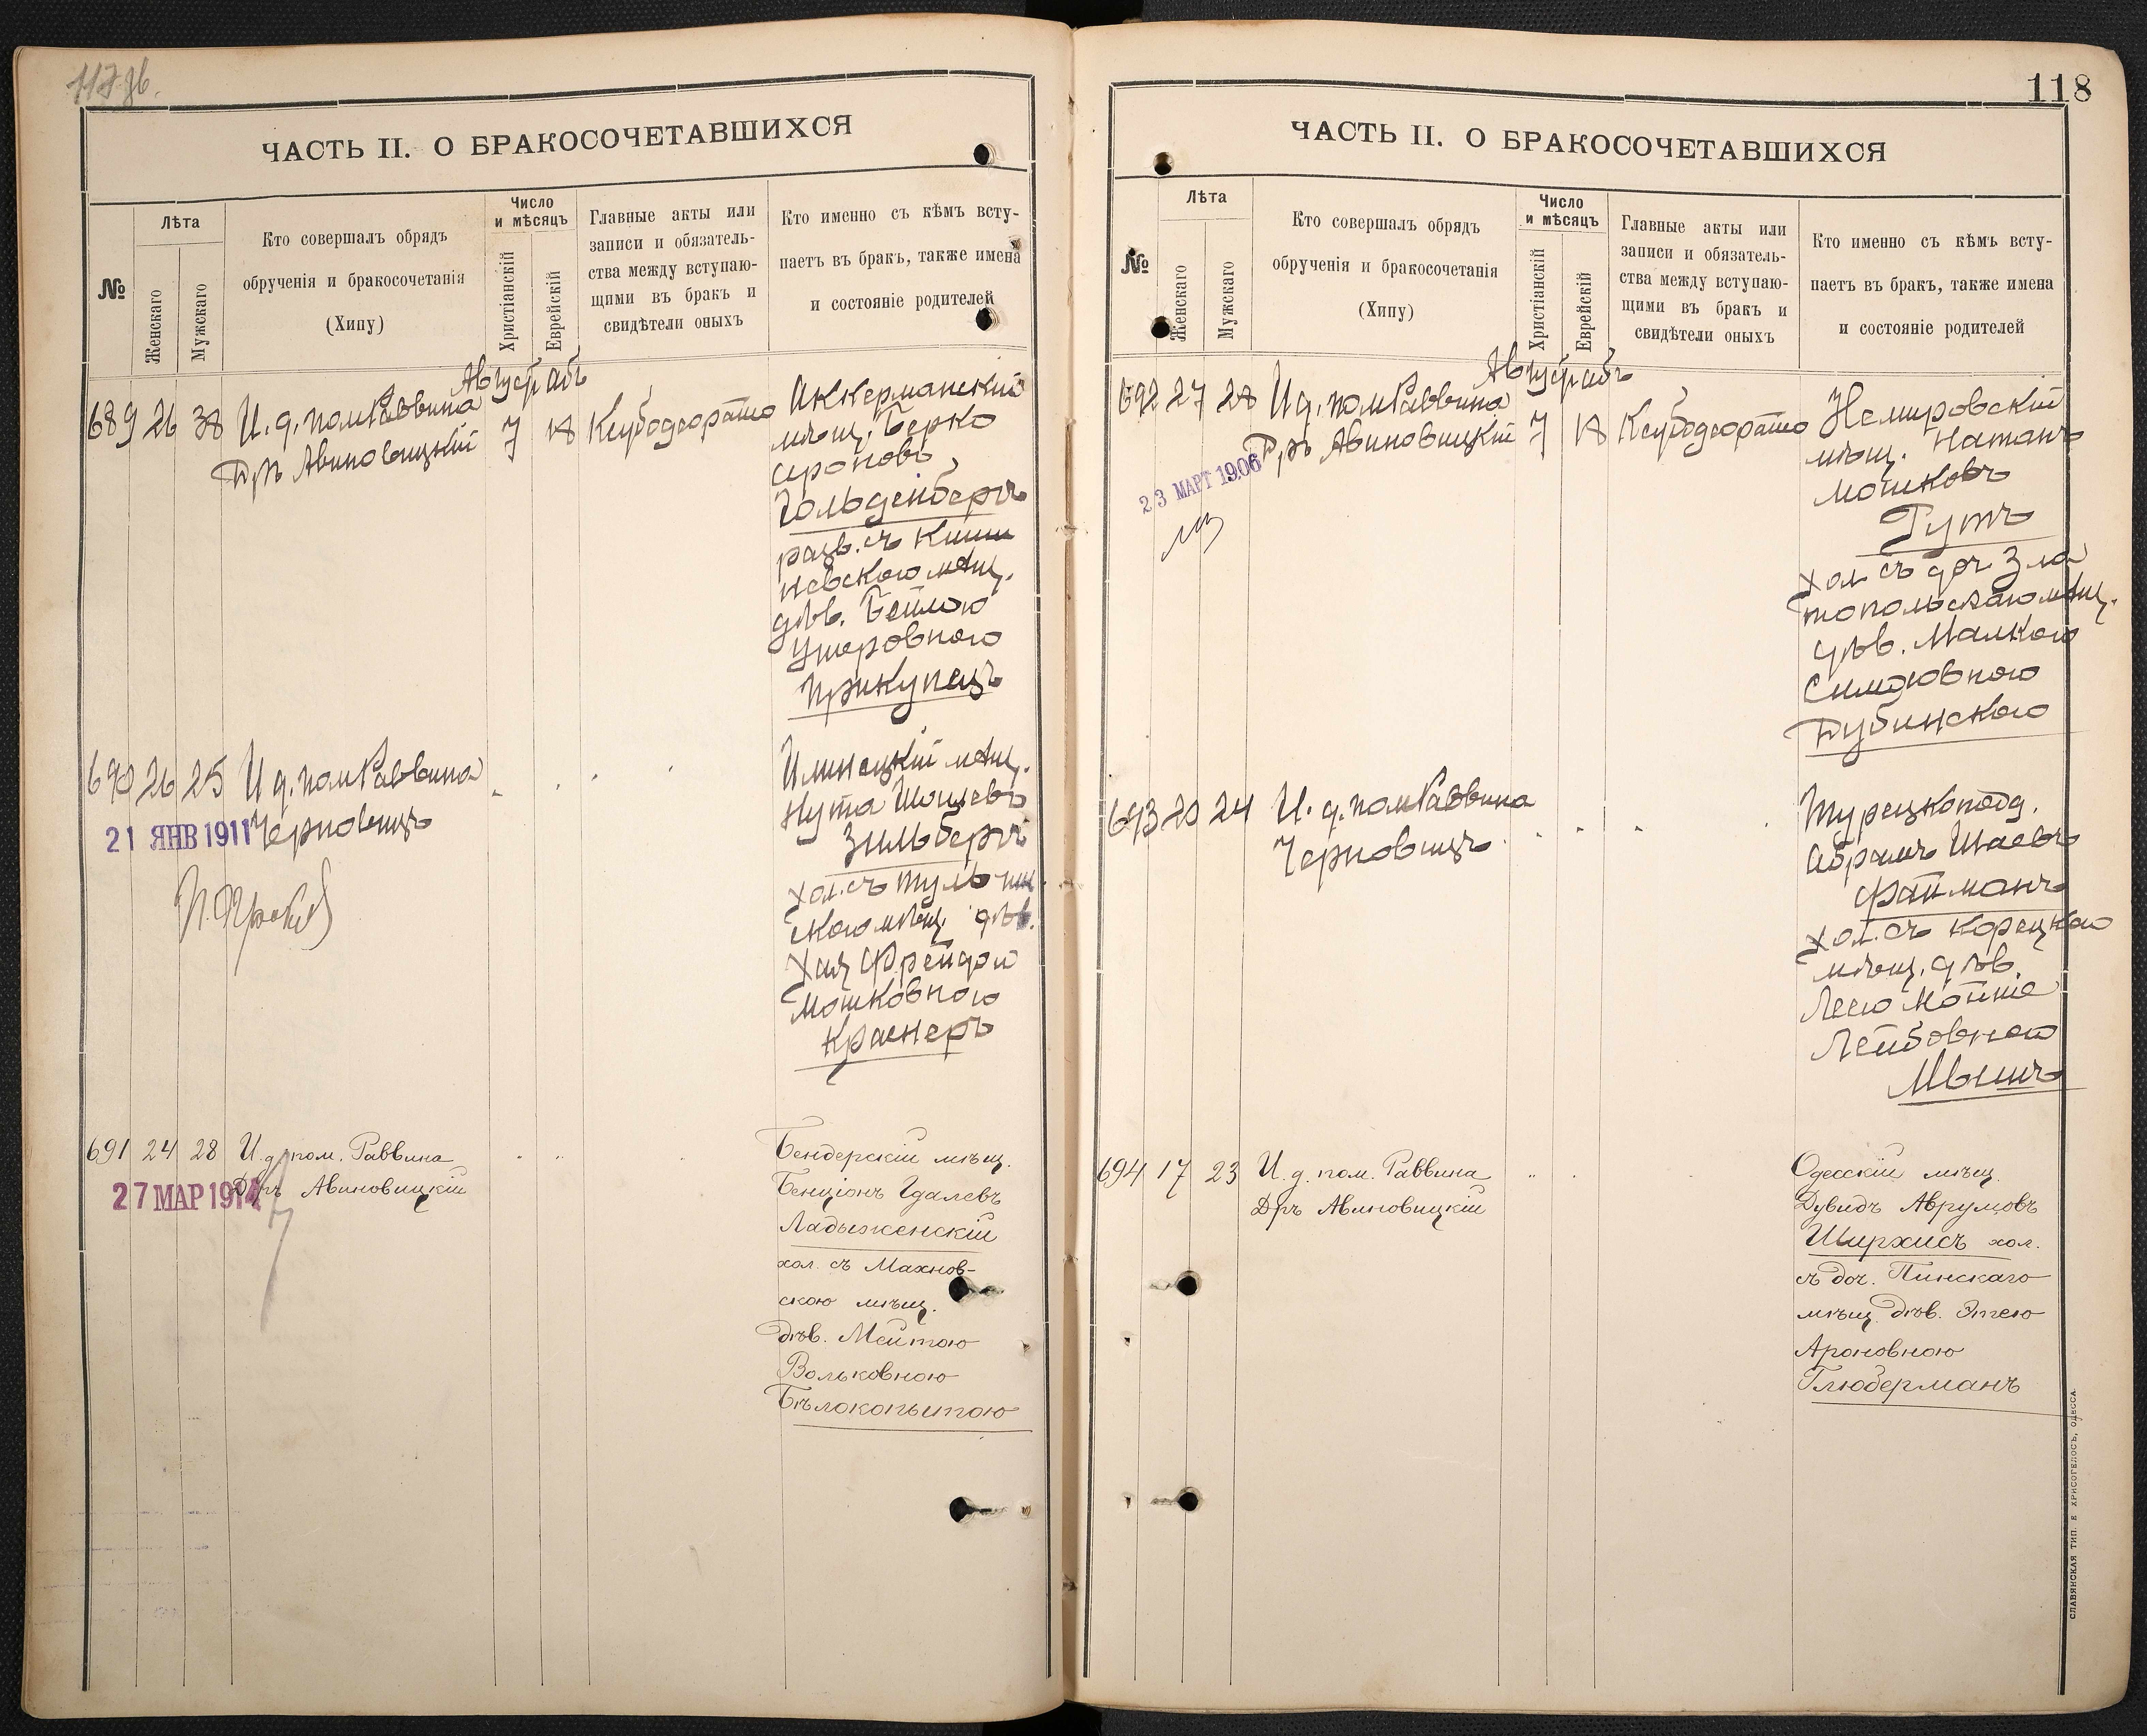 117 об.
ЧАСТЬ II. О БРАКОСОЧЕТАВШИХСЯ
№
Лѣта
Женскаго
Мужскаго
Кто совершалъ обрядъ
обрученія и бракосочетанія
(Хипу)
Число
и мѣсяцъ
Христіанскій
Еврейскій
Главные акты или
записи и обязатель-
ства между вступаю-
щими въ бракъ и
свидѣтели оныхъ
Кто именно съ кѣмъ всту-
паетъ въ бракъ, также имена
и состояніе родителей
Августъ Абъ
689 26 38 И. д. пом Раввина 7 18
Дръ Авиновицкій
Аккерманскій
мѣщ. Берко
Сроновъ
Гольденбергъ
разв. съ Киши
невскою мѣщ.
дѣв. Бейлою
Ушеровною
Прикупецъ
690 26 25 И д. пом Раввина
Черновицъ
21 ЯНВ 1911
Илинецкій мѣщ.
Нута
Зильберъ
хол. съ Тульчин
скою мѣщ. дѣв.
Хая Фрейдою
Мошковною
Краснеръ
691 24 28 И. д. пом. Раввина
Дръ Авиновицкій
27 МАР 1914
Бендерскій мѣщ.
Бенціонъ Идалевъ
Ладыженскій
хол. съ Махнов-
скою мѣщ.
дѣв. Мейтою
Вольковною
Бѣлокопытою
118
ЧАСТЬ II. О БРАКОСОЧЕТАВШИХСЯ
№
Лѣта
Женскаго
Мужскаго
Кто совершалъ обрядъ
обрученія и бракосочетанія
(Хипу)
Число
и мѣсяцъ
Христіанскій
Еврейскій
Главные акты или
записи и обязатель-
ства между вступаю-
щими въ бракъ и
свидѣтели оныхъ
Кто именно съ кѣмъ всту-
паетъ въ бракъ, также имена
и состояніе родителей
Августъ Абъ
692 27 28 И д. пом Раввина 7 18
Дръ Авиновицкій
23 МАРТ 1906
Немировскій
мѣщ. Натанъ
Мошковъ
Гутъ
хол съ доч Зла
топольскаго мѣщ.
дѣв. Малкою
Дубинскою
693 20 24 И. д. пом Раввина
Черновицъ
Турецкоподд.
Абрамъ Шаевъ
Файманъ
хол. съ Корецкою
мѣщ. дѣв.
Лею Мойше
Лейбовною
694 17 23 И. д. пом. Раввина
Дръ Авиновицкій
Одесскій мѣщ.
Дувидъ Аврумовъ
Ширхисъ хол.
съ доч. Пинскаго
мѣщ. дѣв. Этею
Ароновною
Глюберманъ
СЛАВЯНСКАЯ ТИП. Е ХРИСОГЕЛОСЪ, ОДЕССА.